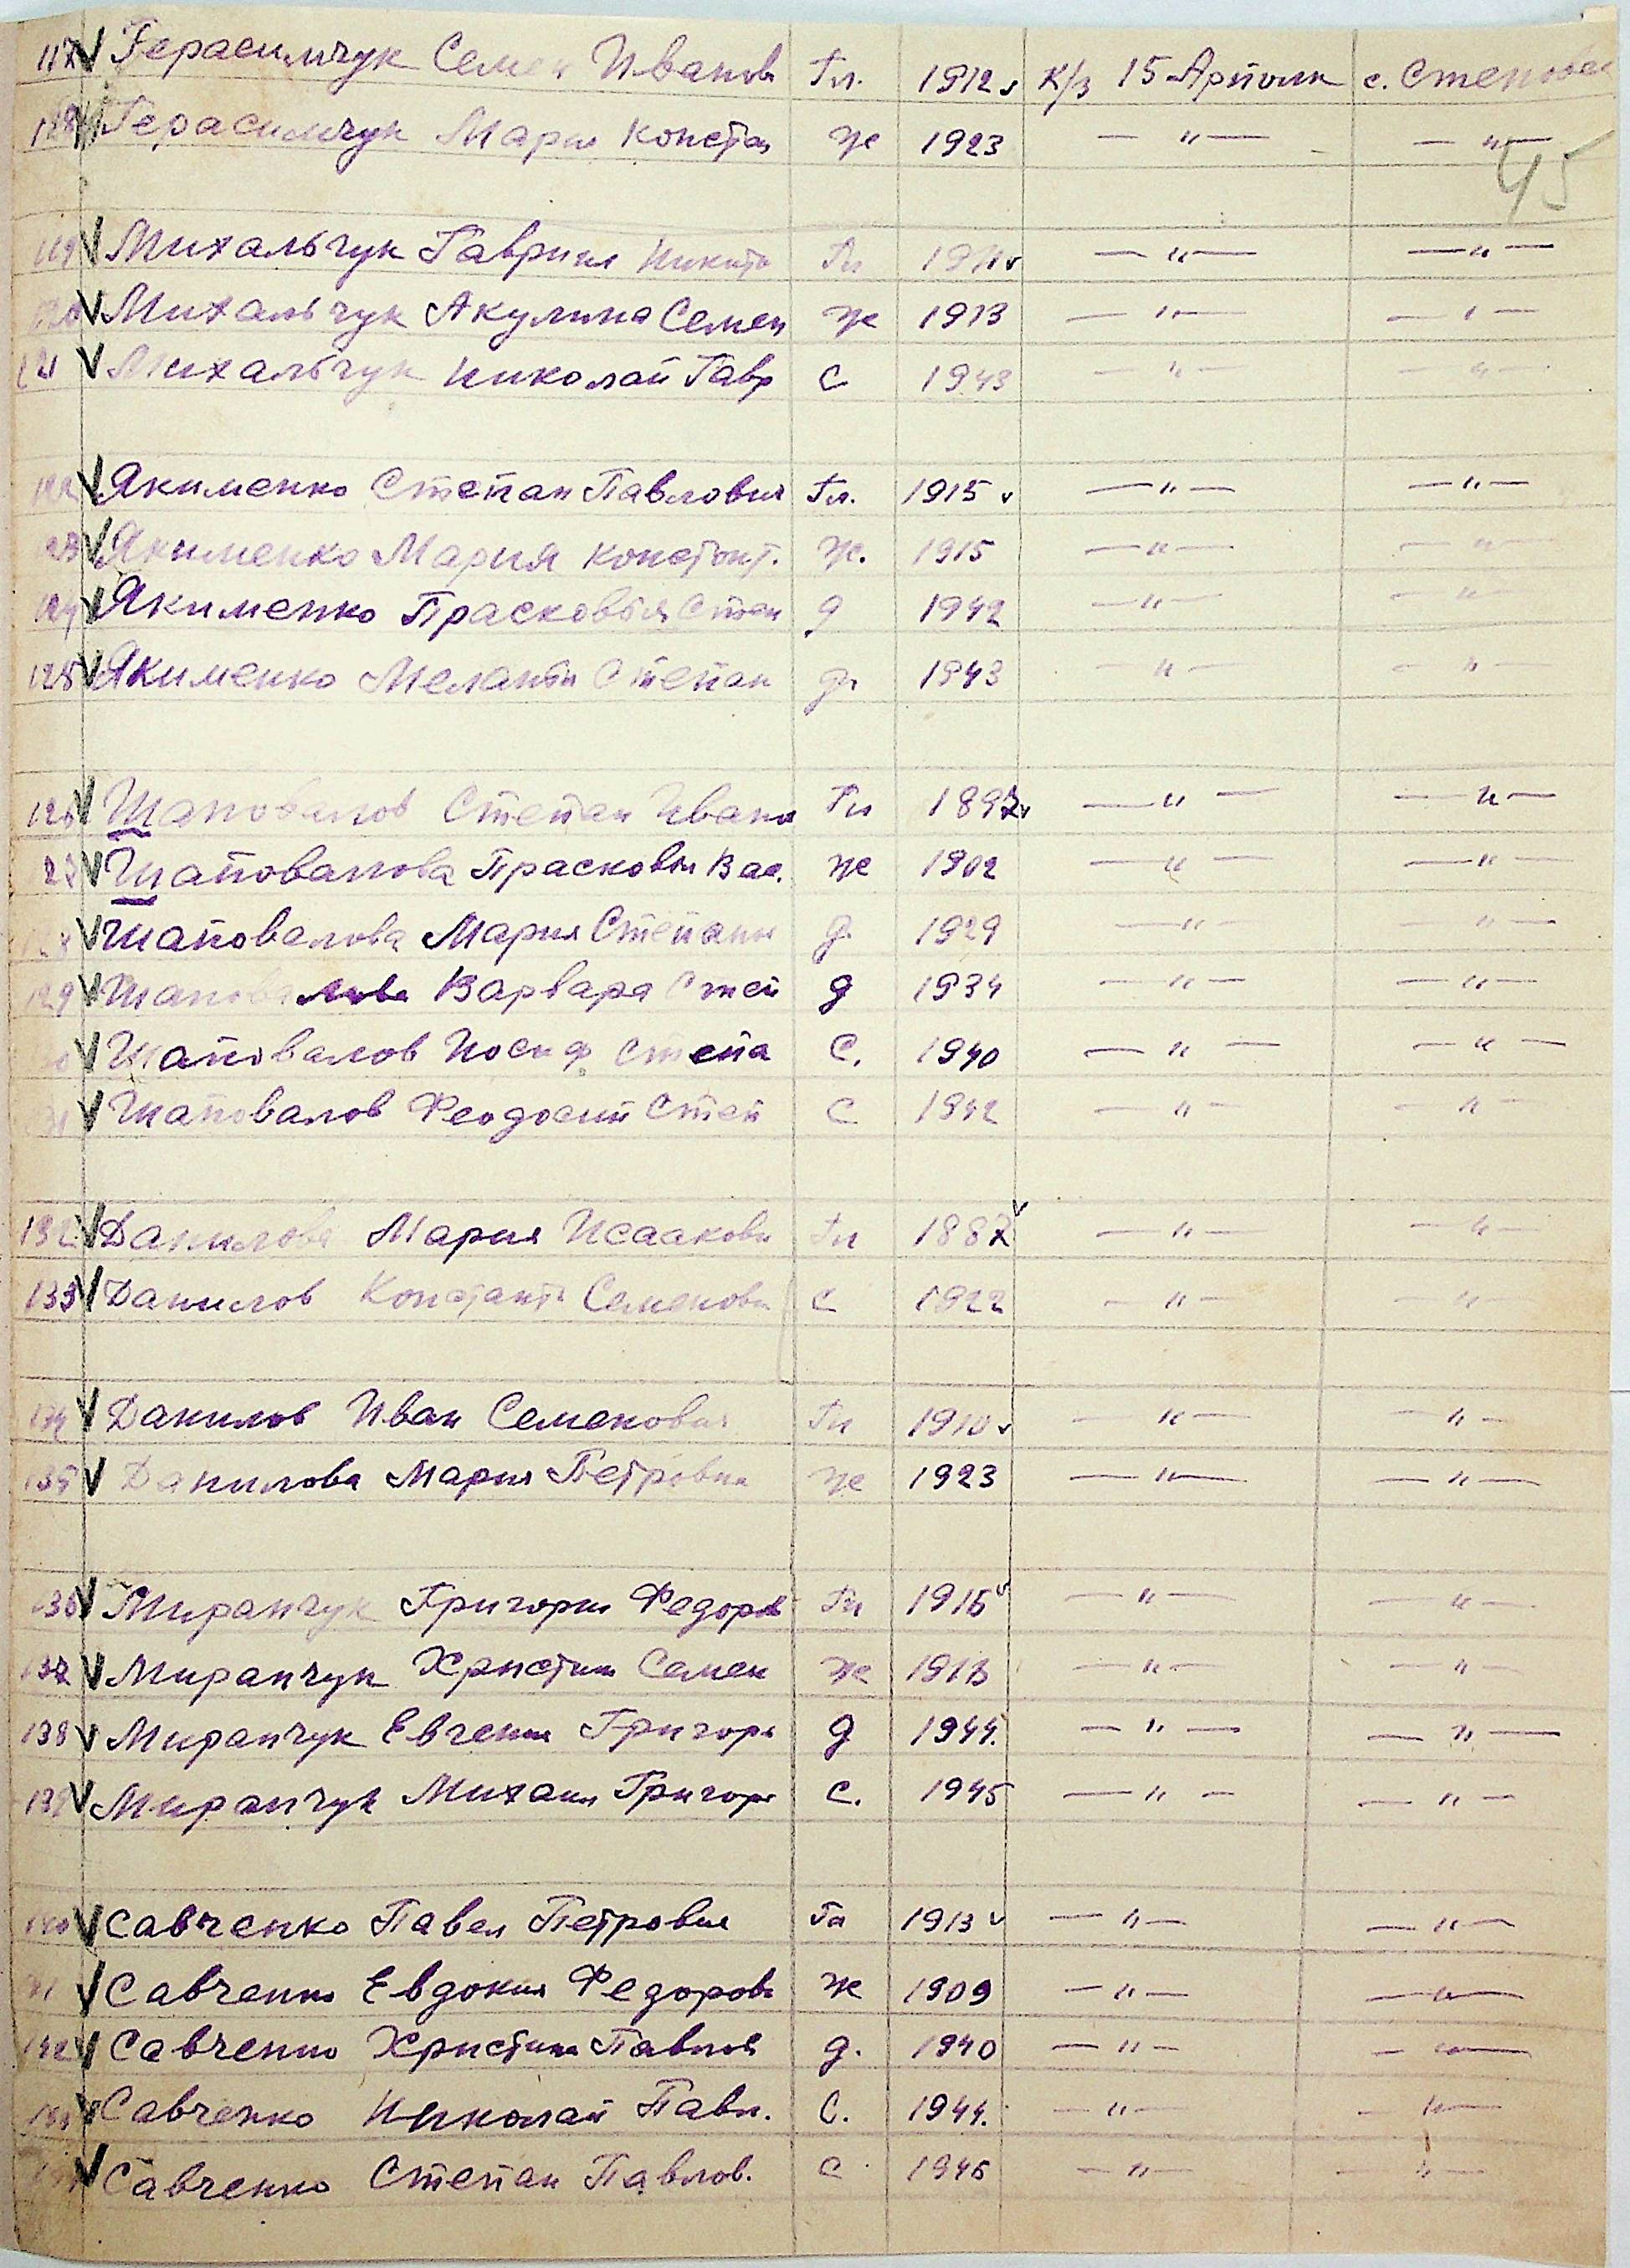 117 Герасимчук Семен Иванов Гл. 1912 к/з 15 Артполк с. Степовое
118 Герасимчук Мария Констан ж 1923 — " — — " —
45
119 Михальчук Гавриил Никито Гл 1911 — " — — " —
120 Михальчук Акулина Семен ж 1913 — " — — " —
121 Михальчук Николай Гавр с 1943 — " — — " —
122 Якименко Степан Павлович Гл. 1915 — " — — " —
123 Якименко Мария Констонт. ж. 1915 — " — — " —
124 Якименко Прасковья Степ д 1942 — " — — " —
125 Якименко Мелания Степан д 1943 — " — — " —
126 Шаповалов Степан Иванов Гл 1897 — " — — " —
127 Шаповалова Прасковья Вас. ж 1902 — " — — " —
128 Шаповалова Мария Степано д. 1929 — " — — " —
129 Шаповалова Варвара Степ д 1934 — " — — " —
Шаповалов Иосиф Степа с. 1940 — " — — " —
31 Шаповалов Феодосий Степ с 1942 — " — — " —
132 Данилова Мария Исаакови Гл 1887 — " — — " —
133 Данилов Константи Семенови с 1922 — " — — " —
134 Данилов Иван Семенович Гл 1910 — " — — " —
135 Данилова Мария Петровна ж 1923 — " — — " —
136 Миранчук Григории Федоров Гл 1915 — " — — " —
137 Миранчук Христин Семен ж 1913 — " — — " —
138 Миранчук Евгения Григорь д 1944. — " — — " —
139 Миранчук Михаил Григорь с. 1945 — " — — " —
140 Савченко Павел Петрович Гл 1913 — " — — " —
41 Савченко Евдокия Федоровн ж 1909 — " — — " —
142 Савченко Христина Павлов д. 1940 — " — — " —
143 Савченко Николай Павл. с. 1944. — " — — " —
144 Савченко Степан Павлов. с 1946 — " — — " —